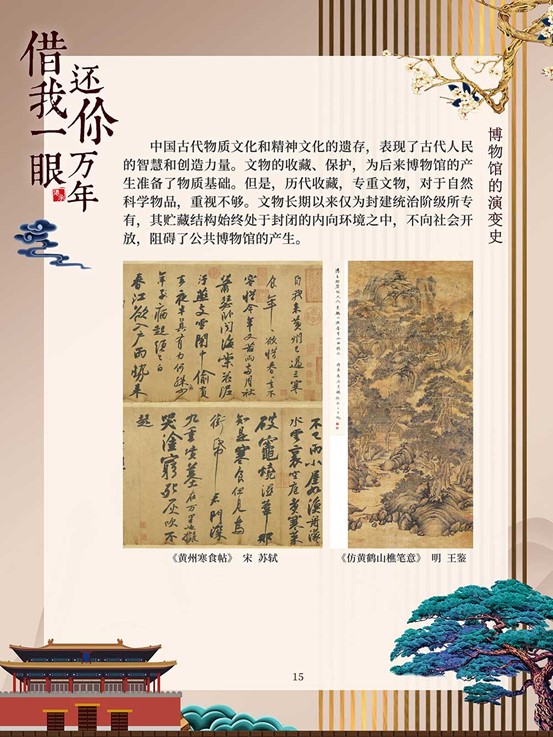 借我一眼
还你万年
博物馆的演变史
中国古代物质文化和精神文化的遗存，表现了古代人民
的智慧和创造力量。文物的收藏、保护，为后来博物馆的产
生准备了物质基础。但是，历代收藏，专重文物，对于自然
科学物品，重视不够。文物长期以来仅为封建统治阶级所专
有，其贮藏结构始终处于封闭的内向环境之中，不向社会开
放，阻碍了公共博物馆的产生。
自我來黃州已過三寒
食年年欲惜春春去不
容惜今年又苦雨兩月秋
蕭瑟卧聞海棠花泥
汙燕支雪闇中偷負
去夜半真有力何殊少
年子病起頭已白
春江欲入户雨勢來
不已雨小屋如漁舟濛濛
水雲裏空庖煮寒菜
破竈燒濕葦那
知是寒食但見烏
銜帋君門深
九重墳墓在万里也擬
哭塗窮死灰吹不
起
《黄州寒食帖》 宋 苏轼
《仿黄鹤山樵笔意》 明 王鉴
15